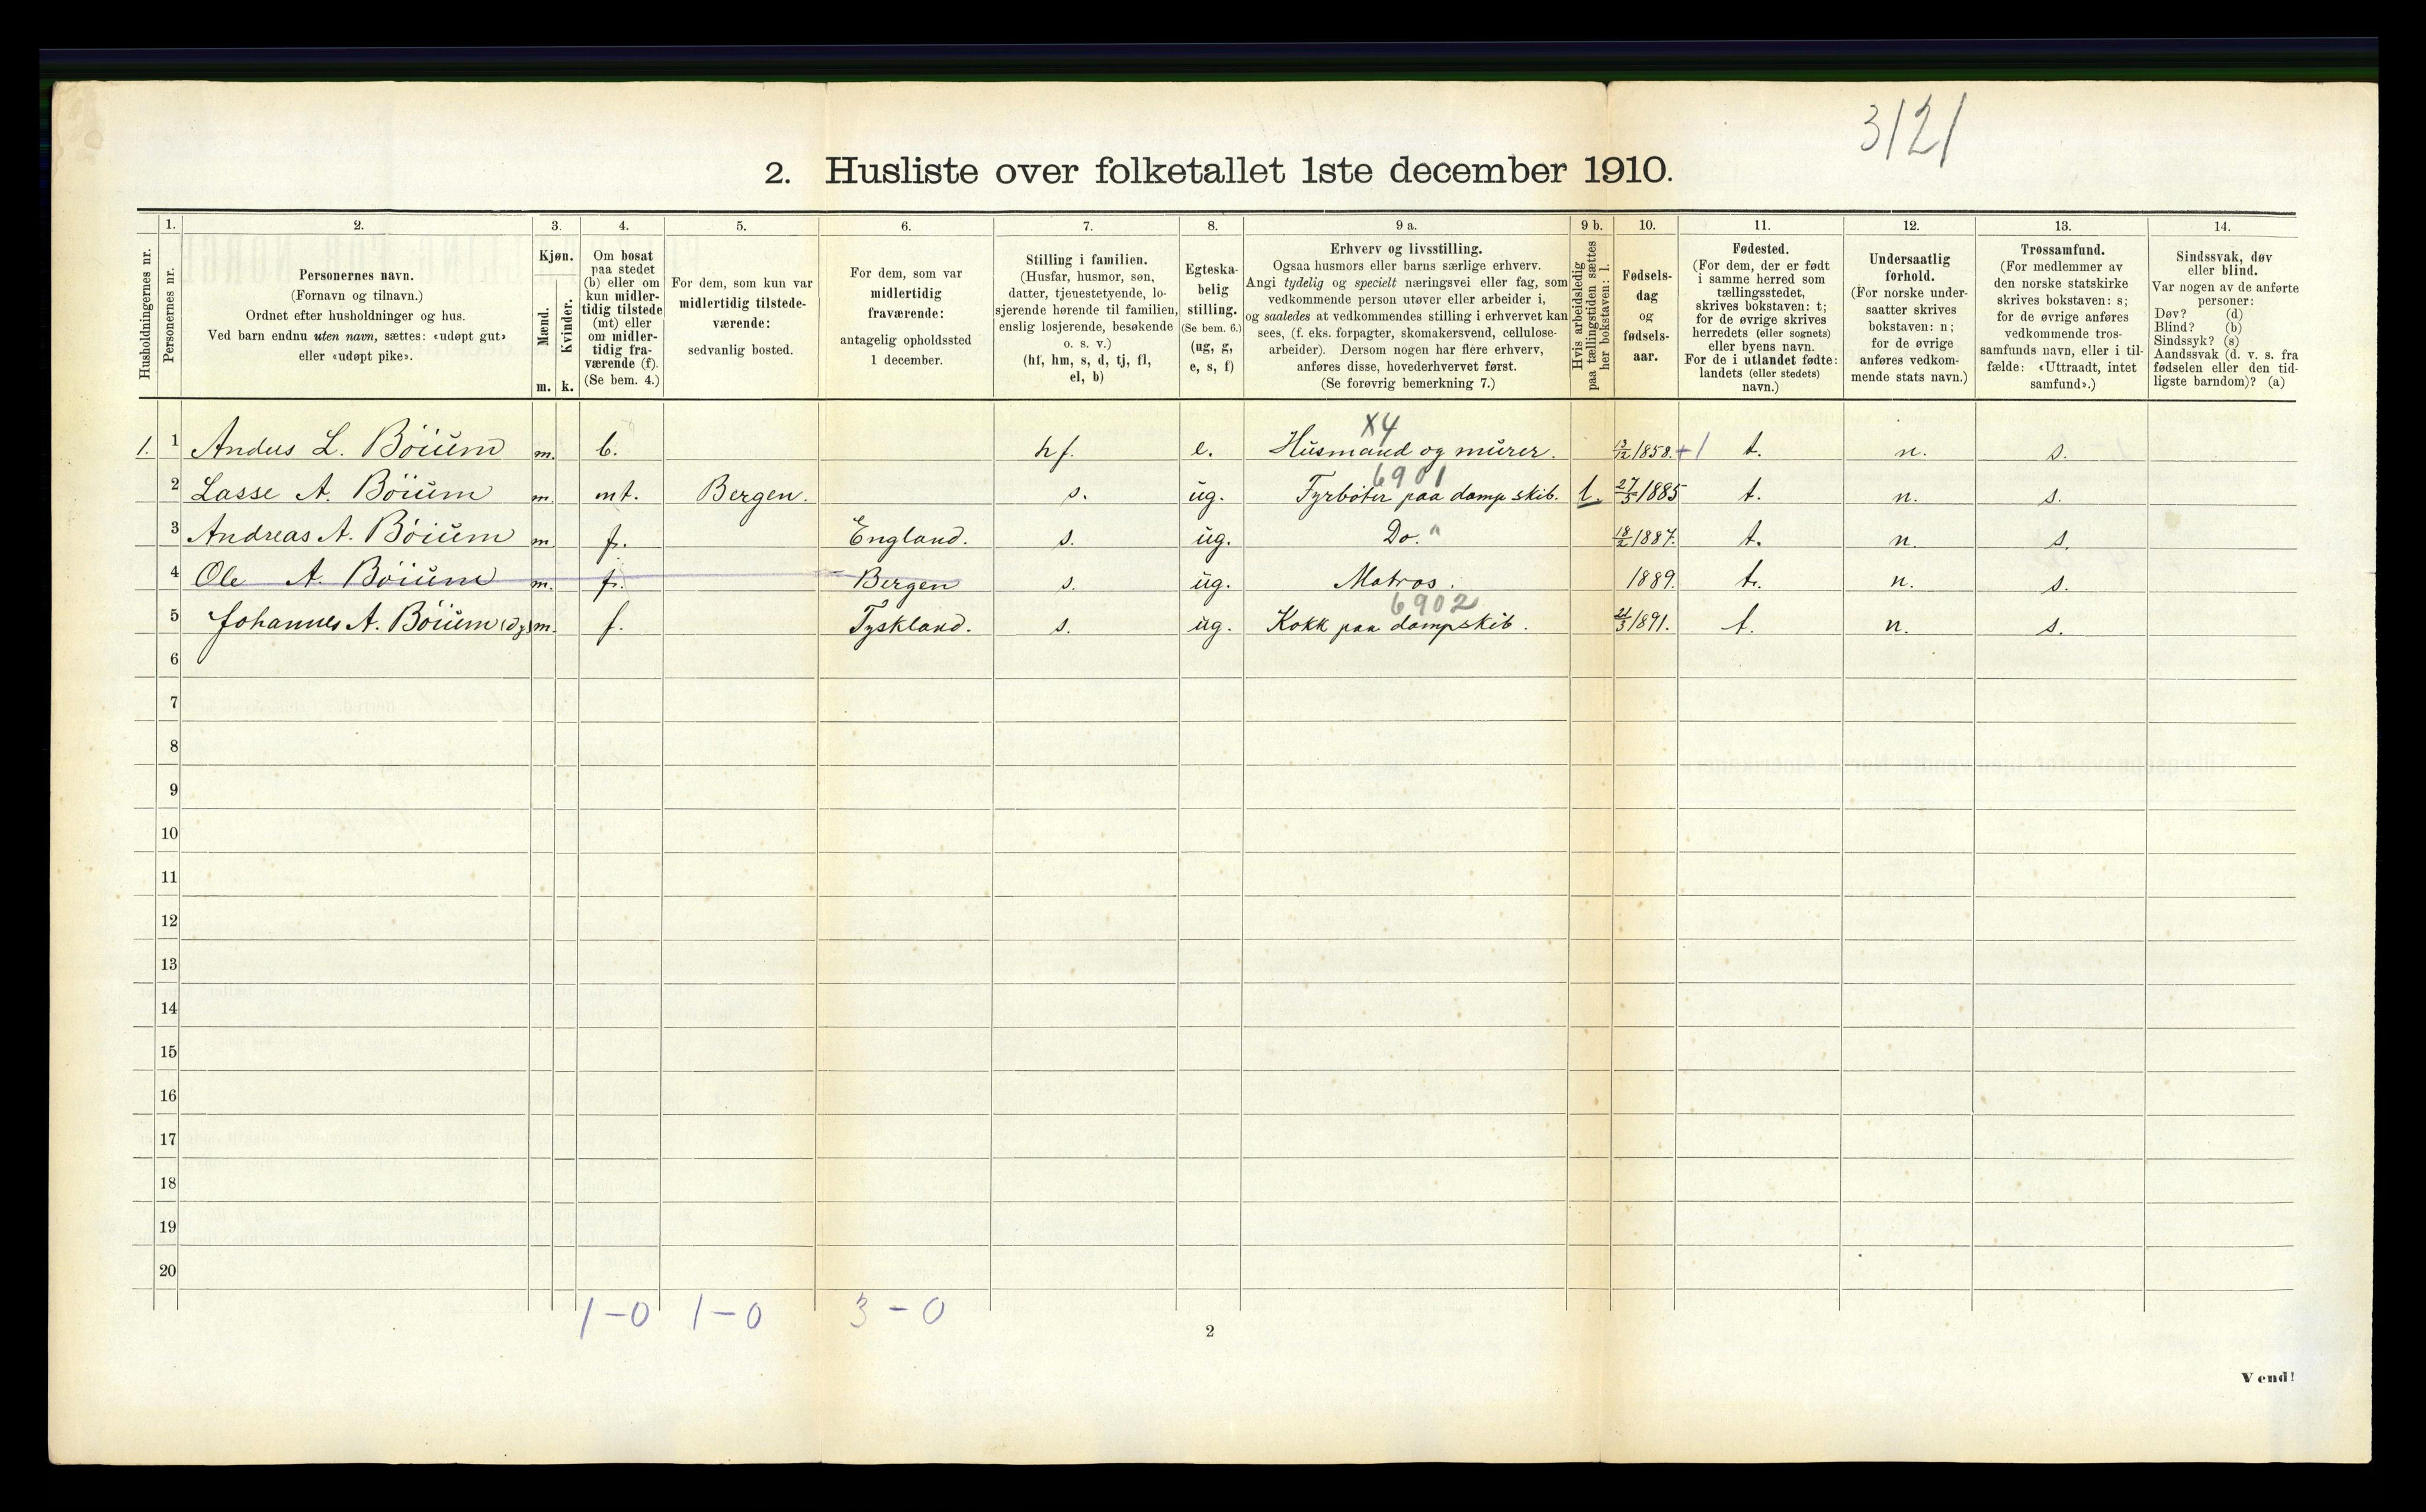 3121
2. Husliste over folketallet 1ste december 1910.
1. 2. 3. 4. 5. 6. 7. 8. 9 a. 9 b. 10. 11. 12. 13. 14.
Husholdningernes nr.
Personernes nr.
Personernes navn.
(Fornavn og tilnavn.)
Ordnet efter husholdninger og hus.
Ved barn endnu uten navn, sættes: «udøpt gut»
eller «udøpt pike».
Kjøn.
Mænd.
Kvinder.
m. k.
Om bosat
paa stedet
(b) eller om
kun midler-
tidig tilstede
(mt) eller
om midler-
tidig fra-
værende (f).
(Se bem. 4.)
For dem, som kun var
midlertidig tilstede-
værende:
sedvanlig bosted.
For dem, som var
midlertidig
fraværende:
antagelig opholdssted
1 december.
Stilling i familien.
(Husfar, husmor, søn,
datter, tjenestetyende, lo-
sjerende hørende til familien,
enslig losjerende, besøkende
o. s. v.)
(hf, hm, s, d, tj, fl,
el, b)
Egteska-
belig
stilling.
(Se bem. 6.)
(ug, g,
e, s, f)
Erhverv og livsstilling.
Ogsaa husmors eller barns særlige erhverv.
Angi tydelig og specielt næringsvei eller fag, som
vedkommende person utøver eller arbeider i,
og saaledes at vedkommendes stilling i erhvervet kan
sees, (f. eks. forpagter, skomakersvend, cellulose-
arbeider). Dersom nogen har flere erhverv,
anføres disse, hovederhvervet først.
(Se forøvrig bemerkning 7.)
Hvis arbeidsledig
paa tællingstiden sættes
her bokstaven: l.
Fødsels-
dag
og
fødsels-
aar.
Fødested.
(For dem, der er født
i samme herred som
tællingsstedet,
skrives bokstaven: t;
for de øvrige skrives
herredets (eller sognets)
eller byens navn.
For de i utlandet fødte:
landets (eller stedets)
navn.)
Undersaatlig
forhold.
(For norske under-
saatter skrives
bokstaven: n;
for de øvrige
anføres vedkom-
mende stats navn.)
Trossamfund.
(For medlemmer av
den norske statskirke
skrives bokstaven: s;
for de øvrige anføres
vedkommende tros-
samfunds navn, eller i til-
fælde: «Uttraadt, intet
samfund».)
Sindssvak, døv
eller blind.
Var nogen av de anførte
personer:
Døv? (d)
Blind? (b)
Sindssyk? (s)
Aandssvak (d. v. s. fra
fødselen eller den tid-
ligste barndom)? (a)
X4
1. 1 Andus L. Böium m. b. hf. e. Husmand og murer. 13/12 1858. +1 t. n. s.
6901
2 Lasse A. Böium m. mt. Bergen. s. ug. Fyrböter paa dampskib. l. 27/5 1885 t. n. s.
3 Andreas A. Böium m. f. England. s. ug. Do. " 18/2 1887. t. n. s.
4 Ole A. Böium m. f. Bergen s. ug. Matros. 1889. t. n. s.
6902
5 Johannes A. Böium m. f. Tyskland. s. ug. Kokk paa dampskib. 1891. t. n. s.
6
7
8
9
10
11
12
13
14
15
16
17
18
19
20
1-0 1-0 3-0
2
Vend!